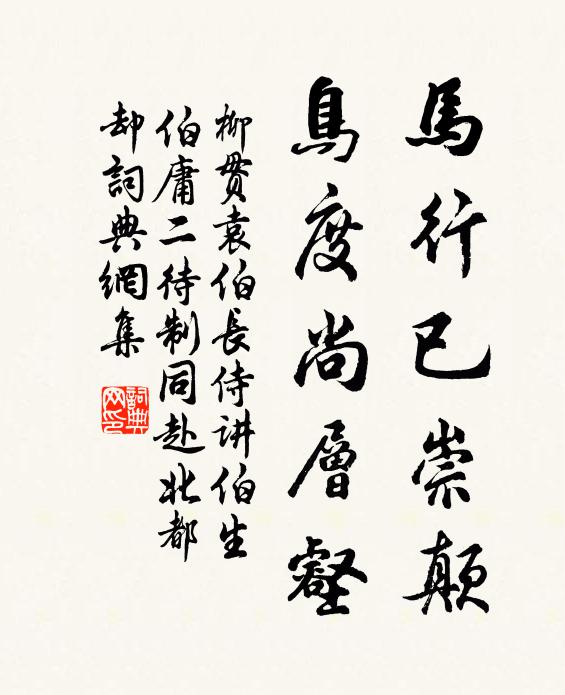 馬行已崇顛
鳥度尚層壑
柳貫袁伯長侍讲伯生
伯庸二待制同赴北都
却詞典網集
詞典
网印